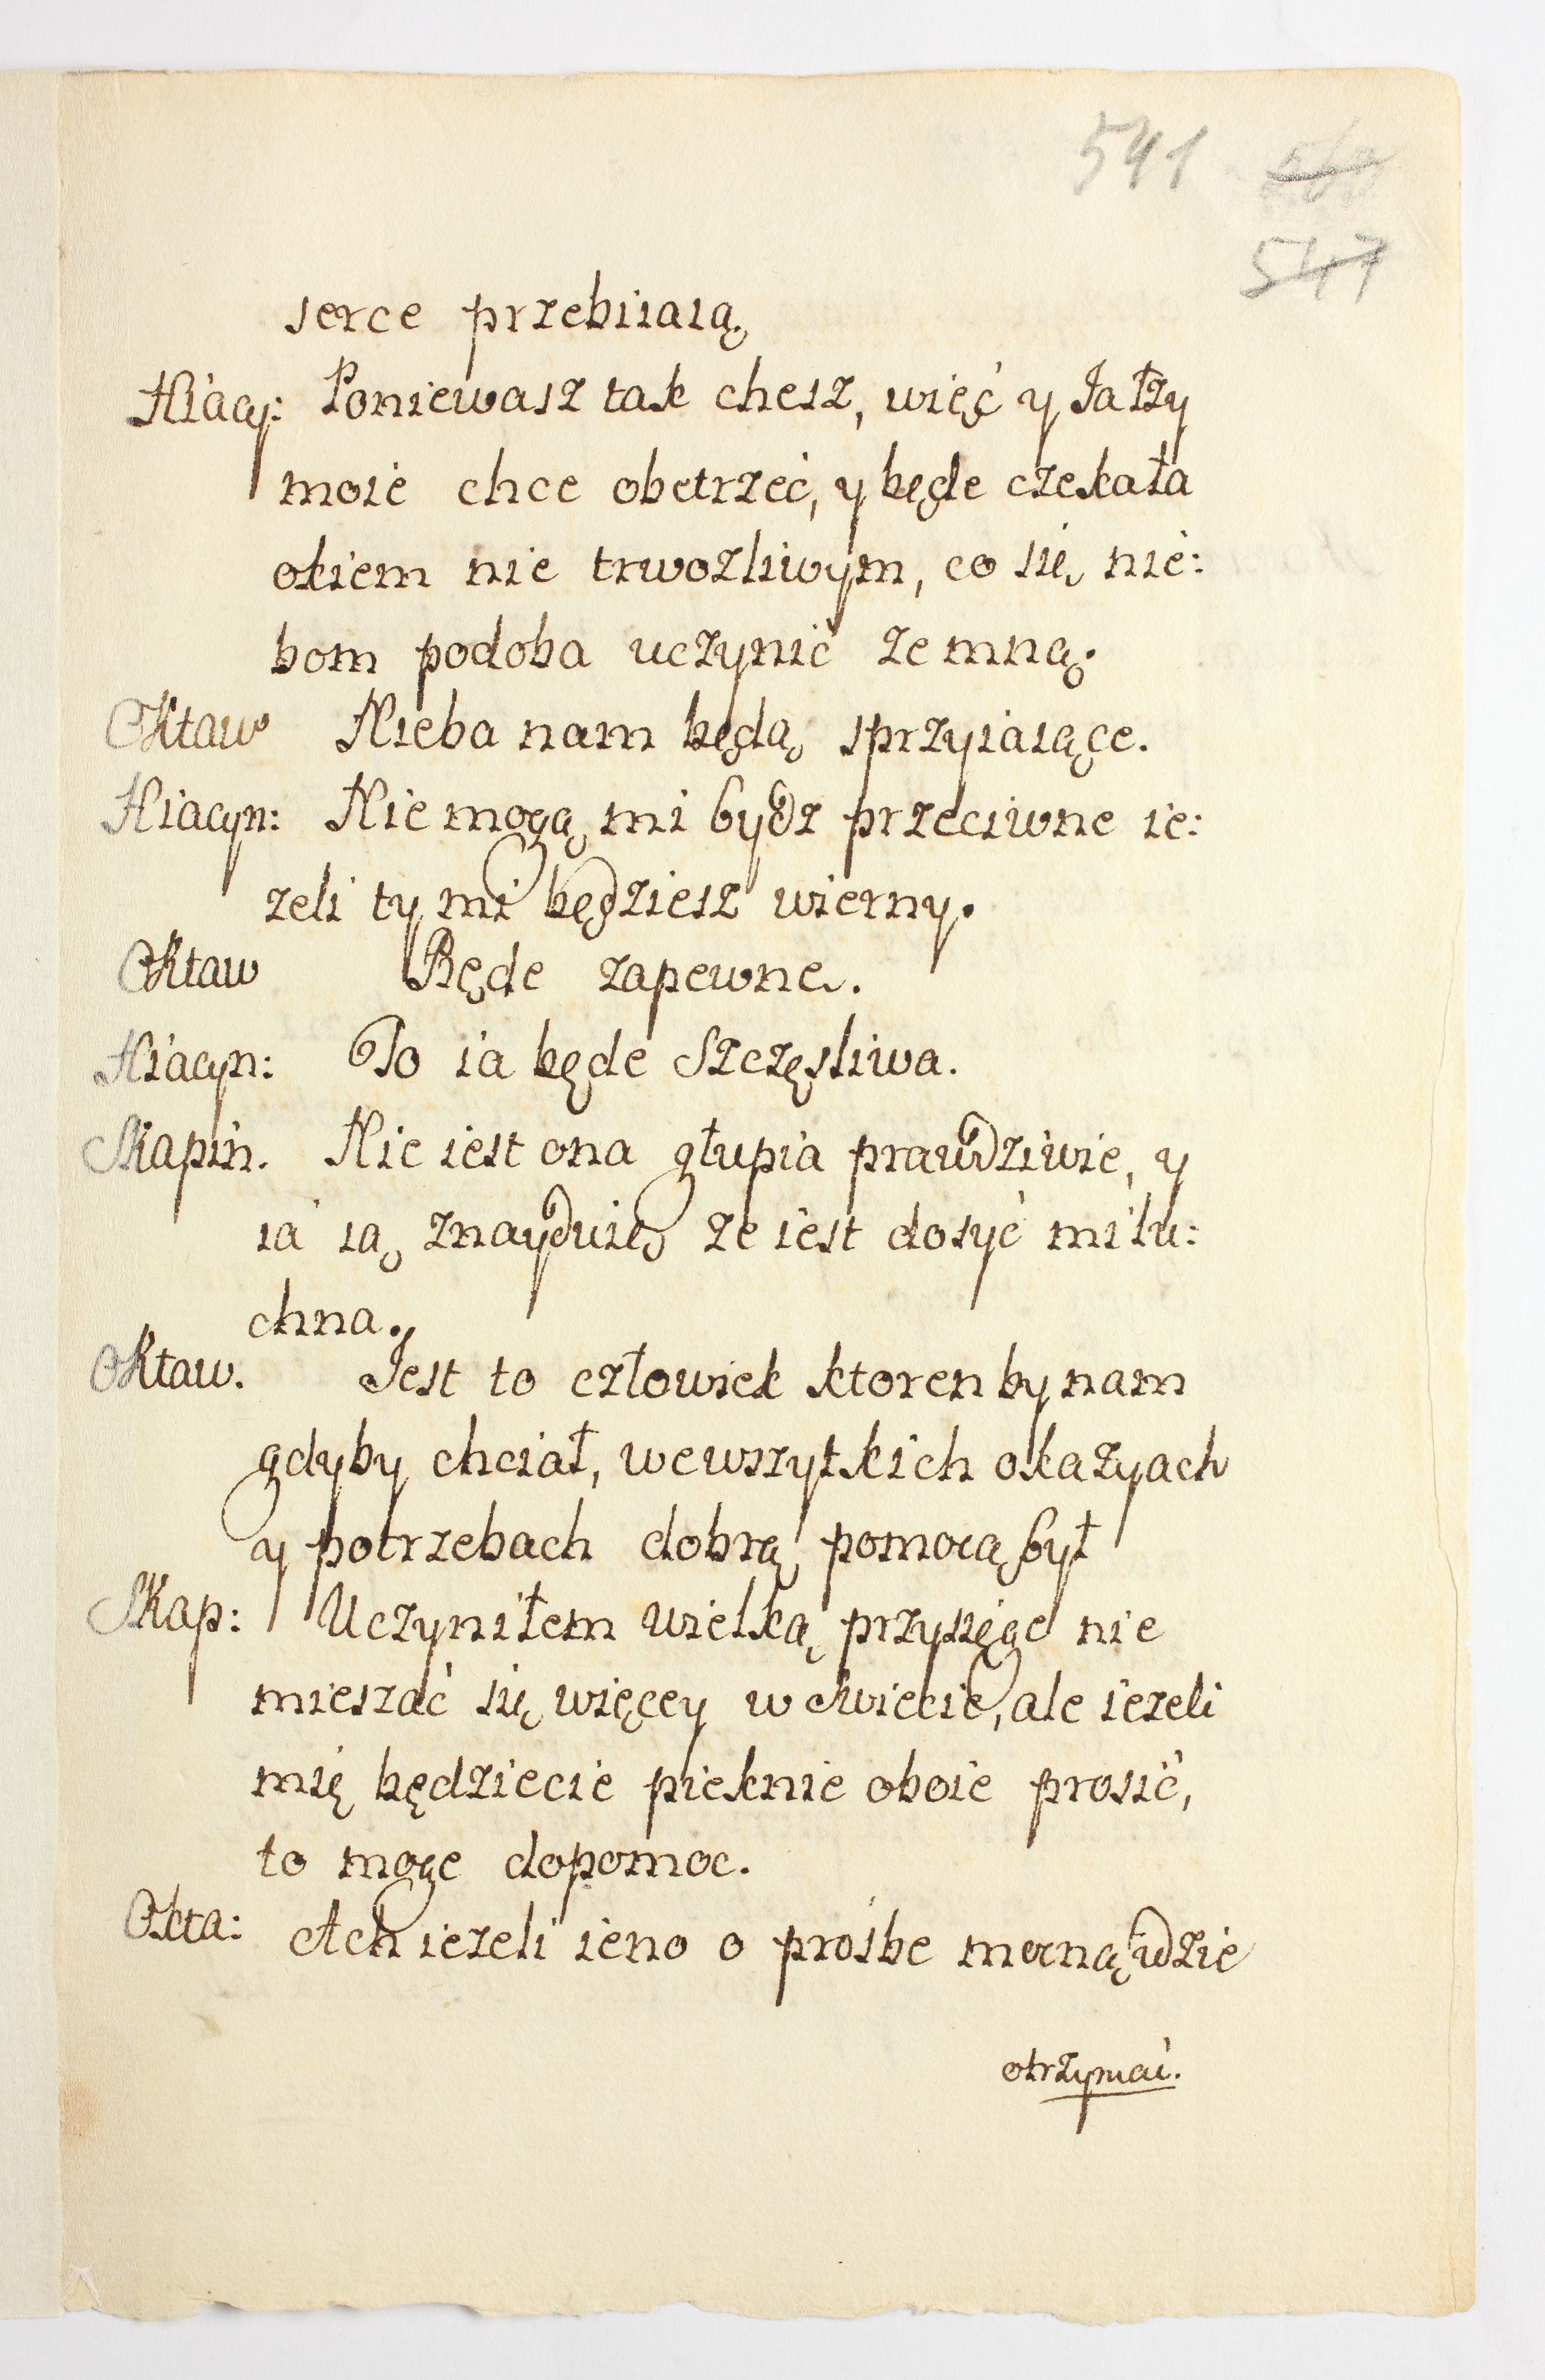 541
547
serce przebiiaią.
Hiacy: Poniewasz tak chesz, więć y Ja łzy
moie chce obetrzeć, y będe czekała
okiem nie trwozliwym, co się nie:
bom podoba uczynić ze mną.
Oktaw Nieba nam będą sprzyiaiące.
Hiacyn: Nie mogą mi bydz przeciwne ie:
zeli ty mi będziesz wierny.
Oktaw Będe zapewne.
Hiacyn: To ia będe Szczęsliwa.
Skapin. Nie iest ona głupia prawdziwie, y
ia ią znayduię ze iest dosyć milu:
chna.
Oktaw. Jest to człowiek ktoren by nam
gdyby chciał, wewszytkich okazyach
y potrzebach dobrą pomocą był
Skap: Uczyniłem wielką przysięgę nie
mieszać się więcey w swiecie, ale iezeli
mię będziecie pieknie oboie prosić,
to mogę dopomoc.
Okta: Ach iezeli ieno o prośbe mocną idzie
otrzymać.